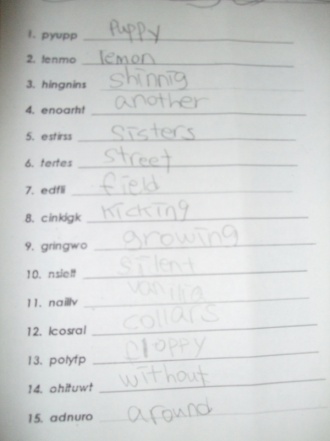 1. pyupp puppy
2. lenmo lemon
3. hingnins shinnig
4. enoarht another
5. estirss sisters
6. tertes street
7. edfli field
8. cinkigk kicking
9. gringwo growing
10. nslelt silent
11. naillv vanilla
12. lcosral collars
13. polyfp cloppy
14. ohituwt without
15. adnuro around